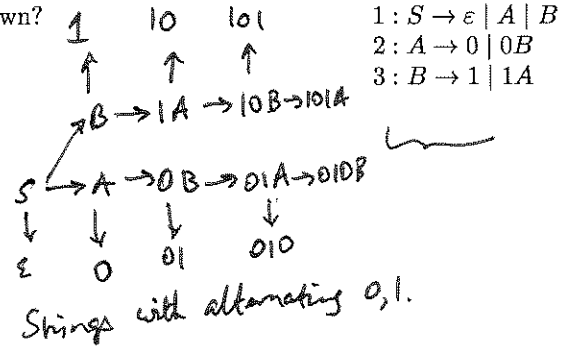 wn? 1 10 101 1 : S → ε | A | B
2 : A → 0 | 0B
3 : B → 1 | 1A
B → 1A → 10B → 101A
S → A → 0B → 01A → 010B
ε 0 01 010
Strings with alternating 0,1.